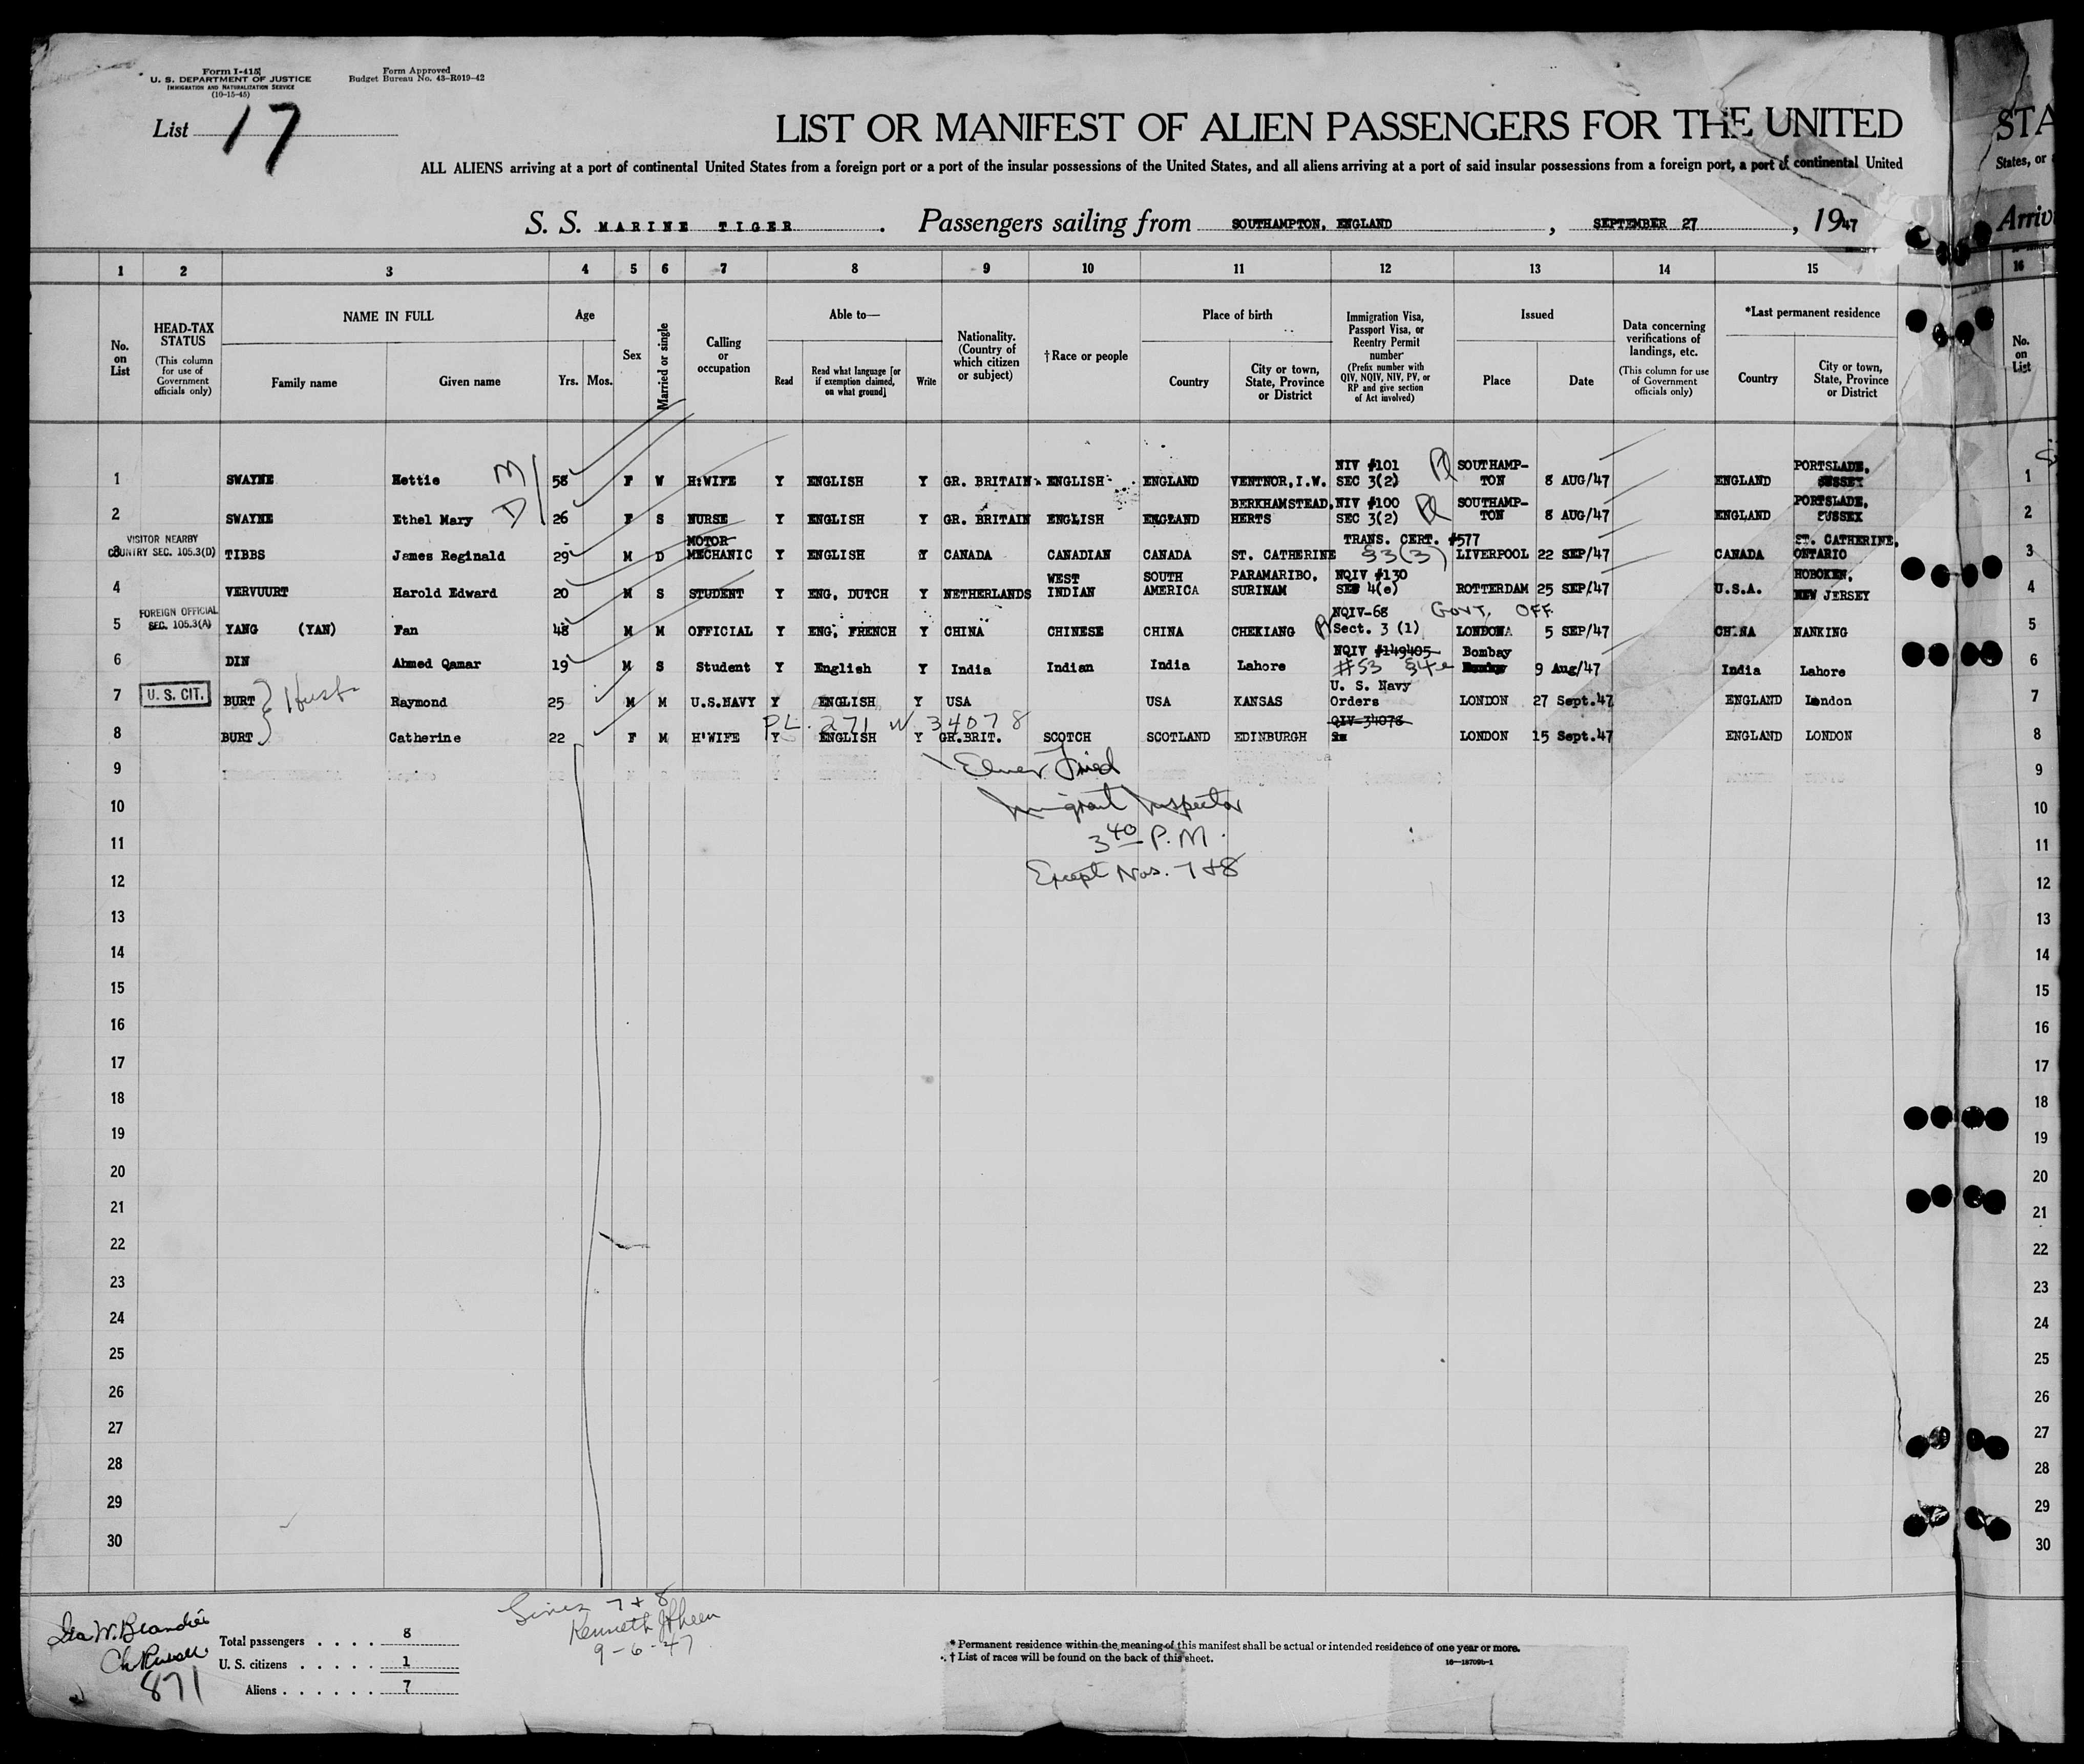 Form I-415
U. S. DEPARTMENT OF JUSTICE
IMMIGRATION AND NATURALIZATION SERVICE
(10-15-45)
Form Approved
Budget Bureau No. 43-R019-42
List 17
LIST OR MANIFEST OF ALIEN PASSENGERS FOR THE UNITED STA
ALL ALIENS arriving at a port of continental United States from a foreign port or a port of the insular possessions of the United States, and all aliens arriving at a port of said insular possessions from a foreign port, a port of continental United States, or
S. S. MARINE TIGER. Passengers sailing from SOUTHAMPTON, ENGLAND, SEPTEMBER 27, 1947 Arriv
1 2 3 4 5 6 7 8 9 10 11 12 13 14 15 16
No. on List
HEAD-TAX STATUS (This column for use of Government officials only)
NAME IN FULL
Family name
Given name
Age
Yrs. Mos.
Sex
Married or single
Calling or occupation
Able to—
Read
Read what language [or if exemption claimed, on what ground]
Write
Nationality. (Country of which citizen or subject)
† Race or people
Place of birth
Country
City or town, State, Province or District
Immigration Visa, Passport Visa, or Reentry Permit number (Prefix number with QIV, NQIV, NIV, PV, or RP and give section of Act involved)
Issued
Place
Date
Data concerning verifications of landings, etc. (This column for use of Government officials only)
*Last permanent residence
Country
City or town, State, Province or District
No. on List
1 SWAYNE Hettie M 58 F W H:WIFE Y ENGLISH Y GR. BRITAIN ENGLISH ENGLAND VENTNOR, I.W. NIV #101 SEC 3(2) SOUTHAMP-TON 8 AUG/47 ENGLAND PORTSLADE, SUSSEX 1
2 SWAYNE Ethel Mary D 26 F S NURSE Y ENGLISH Y GR. BRITAIN ENGLISH ENGLAND BERKHAMSTEAD, HERTS NIV #100 SEC 3(2) SOUTHAMP-TON 8 AUG/47 ENGLAND PORTSLADE, SUSSEX 2
3 VISITOR NEARBY COUNTRY SEC. 105.3(D) TIBBS James Reginald 29 M D MOTOR MECHANIC Y ENGLISH Y CANADA CANADIAN CANADA ST. CATHERINE TRANS. CERT. #577 §3(3) LIVERPOOL 22 SEP/47 CANADA ST. CATHERINE, ONTARIO 3
4 VERVUURT Harold Edward 20 M S STUDENT Y ENG, DUTCH Y NETHERLANDS WEST INDIAN SOUTH AMERICA PARAMARIBO, SURINAM NQIV #130 SEC 4(e) ROTTERDAM 25 SEP/47 U.S.A. HOBOKEN, NEW JERSEY 4
5 FOREIGN OFFICIAL SEC. 105.3(A) YANG (YAN) Fan 48 M M OFFICIAL Y ENG, FRENCH Y CHINA CHINESE CHINA CHEKIANG NQIV-68 Sect. 3 (1) GOVT. OFF. LONDON 5 SEP/47 CHINA NANKING 5
6 DIN Ahmed Qamar 19 M S Student Y English Y India Indian India Lahore NQIV #149405 #53 §4e Bombay 9 Aug/47 India Lahore 6
7 U. S. CIT. BURT Husb Raymond 25 M M U.S.NAVY Y ENGLISH Y USA USA KANSAS U. S. Navy Orders LONDON 27 Sept.47 ENGLAND London 7
P.L. 271 W 34078
8 BURT Catherine 22 F M H'WIFE Y ENGLISH Y GR.BRIT. SCOTCH SCOTLAND EDINBURGH QIV-34078 LONDON 15 Sept.47 ENGLAND LONDON 8
9 Elmer Fried 9
10 Immigrant Inspector 10
11 3 40 P.M. 11
12 Except Nos. 7 + 8 12
13 13
14 14
15 15
16 16
17 17
18 18
19 19
20 20
21 21
22 22
23 23
24 24
25 25
26 26
27 27
28 28
29 29
30 30
Lines 7 + 8
Kenneth
9-6-47
871
Total passengers . . . . 8
U. S. citizens . . . . . 1
Aliens . . . . . . 7
* Permanent residence within the meaning of this manifest shall be actual or intended residence of one year or more.
† List of races will be found on the back of this sheet.
16—18709b-1